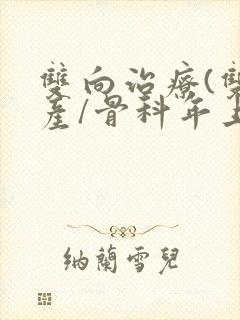 雙向治療(雙
產/骨科年上
納蘭雪兒